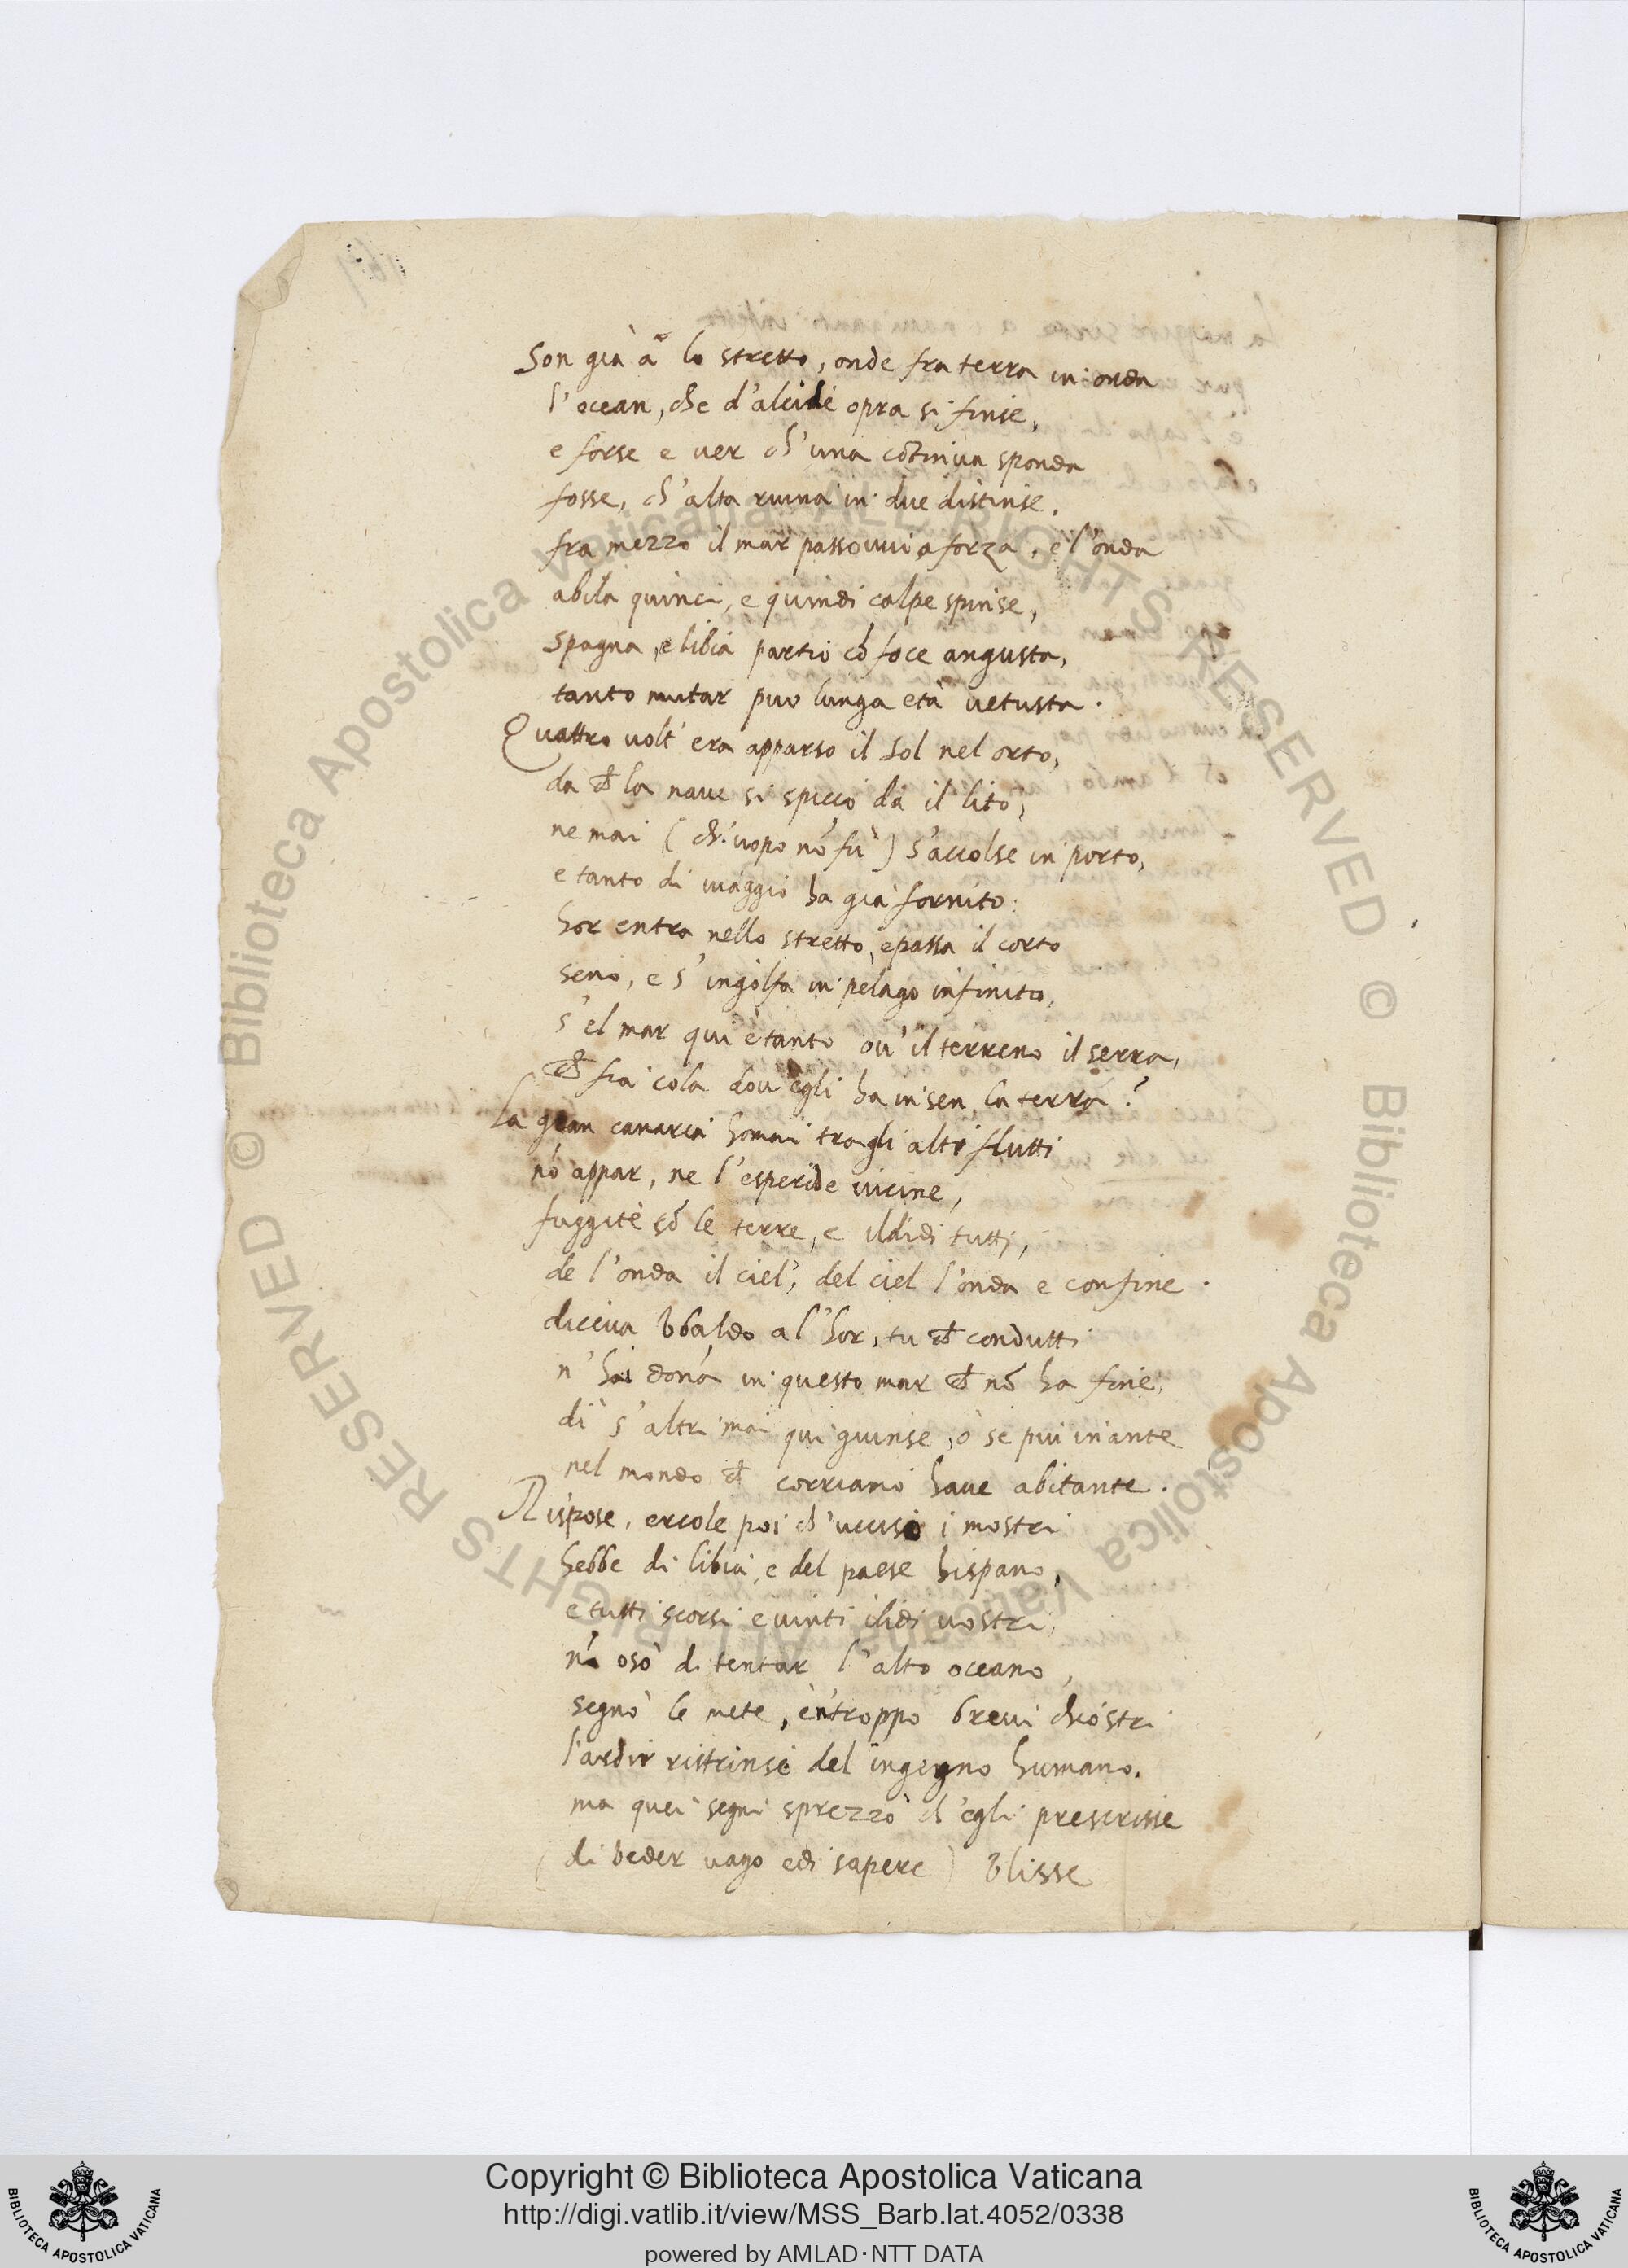 Son già à lo stretto, onde fra terra in onda
l'ocean, che d'alcide opra si finse,
e forse e ver ch'una cõtinua sponda
fosse, ch'alta ruina in due distinse.
fra mezzo il mar passovvi a forza, e l'onda
abila quinci, e quindi calpe spinse,
spagna, e libia partio cõ foce angusta,
tanto mutar puo lunga età vetusta.
Quattro volt' era apparso il Sol nel orto,
da ch̃ la nave si spicco da il lito,
ne mai (ch'uopo nõ fù) s'accolse in porto,
e tanto di viaggio ha già fornito:
hor entra nello stretto, e passa il corto
seno, e s'ingolfa in pelago infinito,
s'el mar qui è tanto ov' il terreno il serra,
ch̃ fia cola dov' egli ha in sen la terra?
La gran canaria homai tra gli alti flutti
nõ appar, ne l'esperide vicine,
fuggite sõ le terre, e i lidi tutti,
de l'onda il ciel, del ciel l'onda e confine.
diceva Ubaldo al'hor, tu ch̃ condutti
n'hai donna in questo mar ch̃ nõ ha fine,
di s'altri mai qui giunse, ò se piu inante
nel mondo ch̃ corriamo have abitante.
Rispose, ercole poi ch'uccisi i mostri
hebbe di libia, e del paese hispano,
e tutti scorsi e vinti i lidi vostri,
nõ osò di tentar l'alto oceano,
segnò le mete, e'n troppo brevi chiostri
l'ardir ristrinse del ingegno humano.
ma quei segni sprezzò ch'egli prescrisse
(di veder vago e di sapere) Ulisse
Copyright © Biblioteca Apostolica Vaticana
http://digi.vatlib.it/view/MSS_Barb.lat.4052/0338
powered by AMLAD·NTT DATA
BIBLIOTECA APOSTOLICA VATICANA
BIBLIOTECA APOSTOLICA VATICANA
© Biblioteca Apostolica Vaticana ALL RIGHTS RESERVED
© Biblioteca Apostolica Vaticana ALL RIGHTS RESERVED